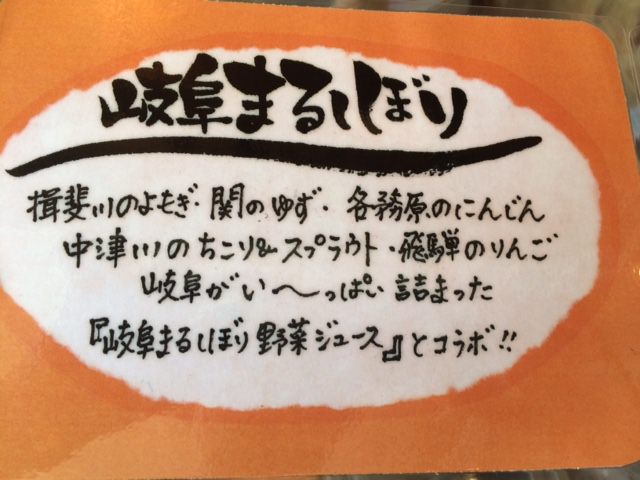 岐阜まるしぼり
揖斐川のよもぎ・関のゆず・各務原のにんじん
中津川のちこり&スプラウト・飛騨のりんご
岐阜がい〜っぱい詰まった
『岐阜まるしぼり野菜ジュース』とコラボ!!